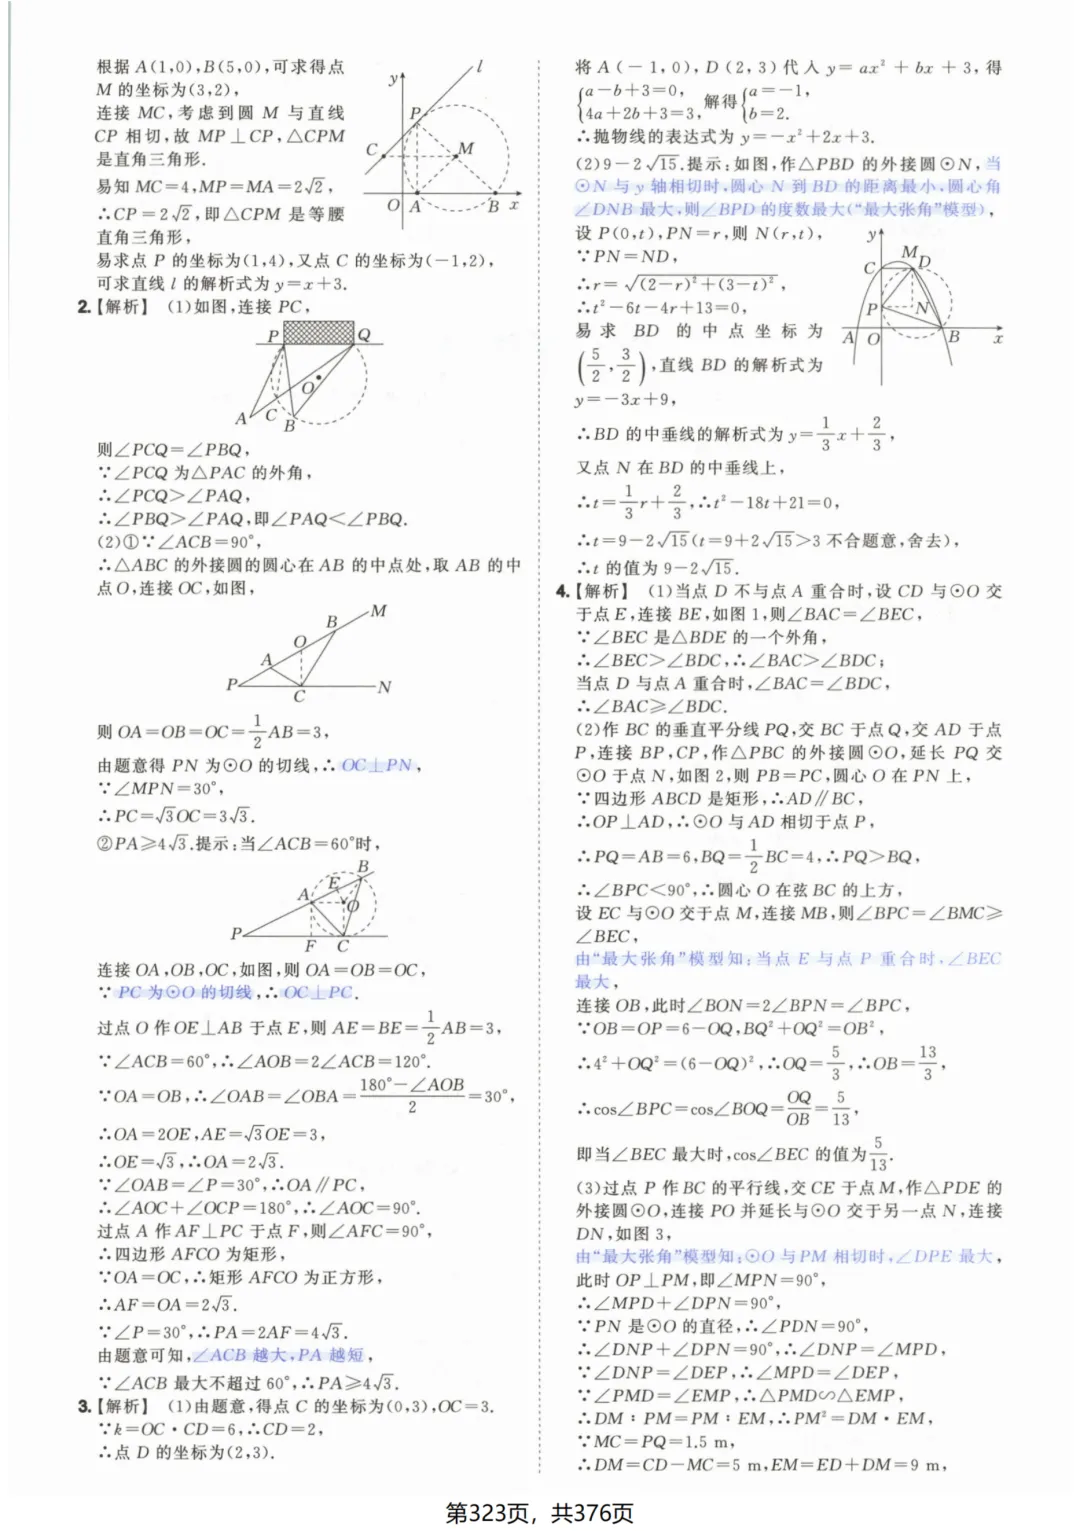 根据 A(1,0),B(5,0),可求得点
M 的坐标为(3,2),
连接 MC,考虑到圆 M 与直线
CP 相切,故 MP⊥CP,△CPM
是直角三角形.
易知 MC=4,MP=MA=2√2,
∴CP=2√2,即△CPM 是等腰
直角三角形,
易求点 P 的坐标为(1,4),又点 C 的坐标为(-1,2),
可求直线 l 的解析式为 y=x+3.
y
l
P
C
M
O
A
B
x
2.【解析】 (1)如图,连接 PC,
P
Q
O
A
C
B
则∠PCQ=∠PBQ,
∵∠PCQ 为△PAC 的外角,
∴∠PCQ>∠PAQ,
∴∠PBQ>∠PAQ,即∠PAQ<∠PBQ.
(2)①∵∠ACB=90°,
∴△ABC 的外接圆的圆心在 AB 的中点处,取 AB 的中
点 O,连接 OC,如图,
M
B
O
A
P
C
N
则 OA=OB=OC=1/2AB=3,
由题意得 PN 为⊙O 的切线,∴OC⊥PN,
∵∠MPN=30°,
∴PC=√3OC=3√3.
②PA≥4√3.提示:当∠ACB=60°时,
B
E
A
O
P
F
C
连接 OA,OB,OC,如图,则 OA=OB=OC,
∵PC 为⊙O 的切线,∴OC⊥PC.
过点 O 作 OE⊥AB 于点 E,则 AE=BE=1/2AB=3,
∵∠ACB=60°,∴∠AOB=2∠ACB=120°.
∵OA=OB,∴∠OAB=∠OBA=(180°-∠AOB)/2=30°,
∴OA=2OE,AE=√3OE=3,
∴OE=√3,∴OA=2√3.
∵∠OAB=∠P=30°,∴OA∥PC,
∴∠AOC+∠OCP=180°,∴∠AOC=90°.
过点 A 作 AF⊥PC 于点 F,则∠AFC=90°,
∴四边形 AFCO 为矩形,
∵OA=OC,∴矩形 AFCO 为正方形,
∴AF=OA=2√3.
∵∠P=30°,∴PA=2AF=4√3.
由题意可知,∠ACB 越大,PA 越短,
∵∠ACB 最大不超过 60°,∴PA≥4√3.
3.【解析】 (1)由题意,得点 C 的坐标为(0,3),OC=3.
∵k=OC·CD=6,∴CD=2,
∴点 D 的坐标为(2,3).
将 A(-1,0),D(2,3)代入 y=ax²+bx+3,得
{a-b+3=0, 4a+2b+3=3, 解得{a=-1, b=2.
∴抛物线的表达式为 y=-x²+2x+3.
(2)9-2√15.提示:如图,作△PBD 的外接圆⊙N,当
⊙N 与 y 轴相切时,圆心 N 到 BD 的距离最小,圆心角
∠DNB 最大,则∠BPD 的度数最大(“最大张角”模型),
设 P(0,t),PN=r,则 N(r,t),
∵PN=ND,
∴r=√((2-r)²+(3-t)²),
∴t²-6t-4r+13=0,
易求 BD 的中点坐标为
(5/2,3/2),直线 BD 的解析式为
y=-3x+9,
y
C
M
D
P
N
A
O
B
x
∴BD 的中垂线的解析式为 y=1/3x+2/3,
又点 N 在 BD 的中垂线上,
∴t=1/3r+2/3,∴t²-18t+21=0,
∴t=9-2√15(t=9+2√15>3 不合题意,舍去),
∴t 的值为 9-2√15.
4.【解析】 (1)当点 D 不与点 A 重合时,设 CD 与⊙O 交
于点 E,连接 BE,如图 1,则∠BAC=∠BEC,
∵∠BEC 是△BDE 的一个外角,
∴∠BEC>∠BDC,∴∠BAC>∠BDC;
当点 D 与点 A 重合时,∠BAC=∠BDC,
∴∠BAC≥∠BDC.
(2)作 BC 的垂直平分线 PQ,交 BC 于点 Q,交 AD 于点
P,连接 BP,CP,作△PBC 的外接圆⊙O,延长 PQ 交
⊙O 于点 N,如图 2,则 PB=PC,圆心 O 在 PN 上,
∵四边形 ABCD 是矩形,∴AD∥BC,
∴OP⊥AD,∴⊙O 与 AD 相切于点 P,
∴PQ=AB=6,BQ=1/2BC=4,∴PQ>BQ,
∴∠BPC<90°,∴圆心 O 在弦 BC 的上方,
设 EC 与⊙O 交于点 M,连接 MB,则∠BPC=∠BMC≥
∠BEC,
由“最大张角”模型知:当点 E 与点 P 重合时,∠BEC
最大,
连接 OB,此时∠BON=2∠BPN=∠BPC,
∵OB=OP=6-OQ,BQ²+OQ²=OB²,
∴4²+OQ²=(6-OQ)²,∴OQ=5/3,∴OB=13/3,
∴cos∠BPC=cos∠BOQ=OQ/OB=5/13,
即当∠BEC 最大时,cos∠BEC 的值为5/13.
(3)过点 P 作 BC 的平行线,交 CE 于点 M,作△PDE 的
外接圆⊙O,连接 PO 并延长与⊙O 交于另一点 N,连接
DN,如图 3,
由“最大张角”模型知:⊙O 与 PM 相切时,∠DPE 最大,
此时 OP⊥PM,即∠MPN=90°,
∴∠MPD+∠DPN=90°,
∵PN 是⊙O 的直径,∴∠PDN=90°,
∴∠DNP+∠DPN=90°,∴∠DNP=∠MPD,
∵∠DNP=∠DEP,∴∠MPD=∠DEP,
∵∠PMD=∠EMP,∴△PMD∽△EMP,
∴DM∶PM=PM∶EM,∴PM²=DM·EM,
∵MC=PQ=1.5 m,
∴DM=CD-MC=5 m,EM=ED+DM=9 m,
第323页，共376页